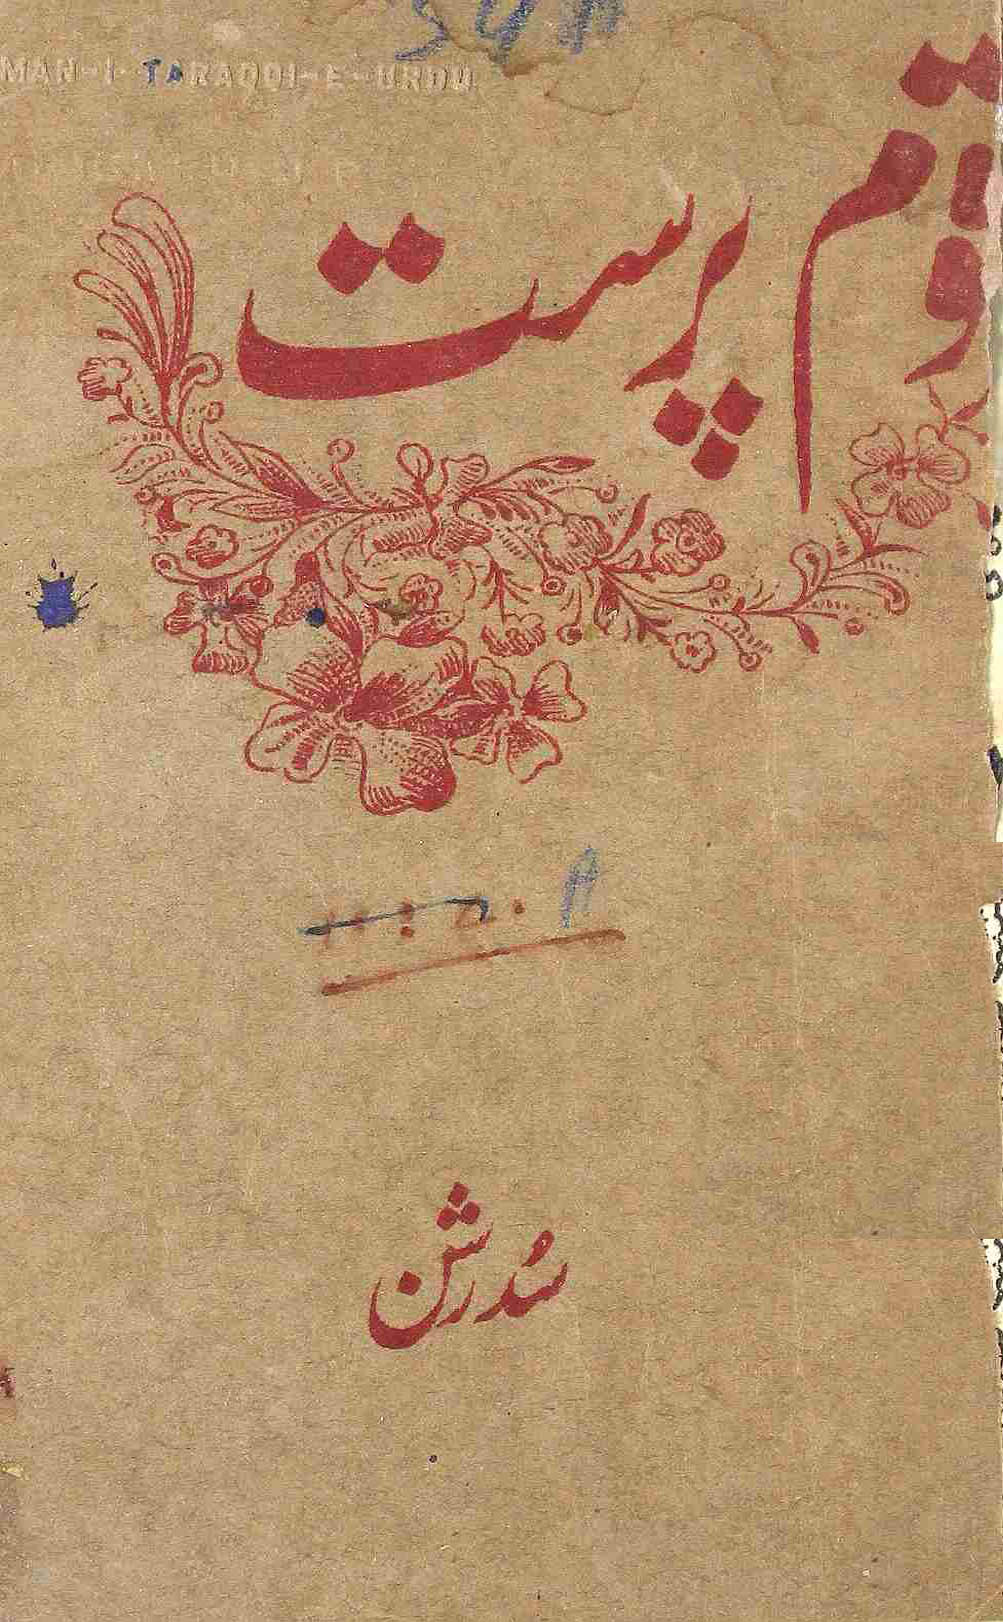 MAN-I-TARAQQI-E-URDU
قوم پرست
سُدرشن